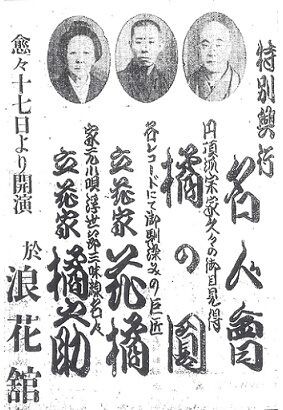 特別興行
名人會
円頂派宗家久々の御目見得
橘の圓
各レコードにて御馴染みの巨匠
立花家花橘
家元小唄浮世節三味線
立花家橘之助
愈々十七日より開演
於 浪花舘